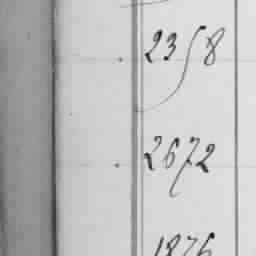 2358
2672
1876